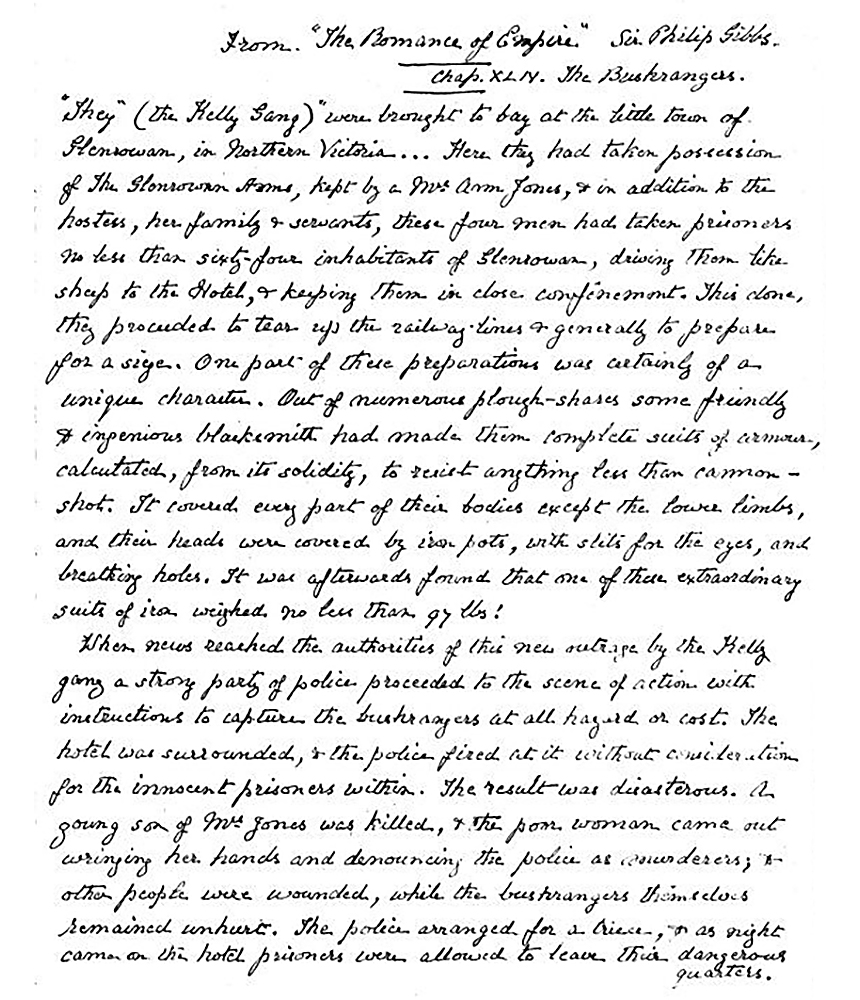 From. "The Romance of Empire." Sir Philip Gibbs.
Chap. XLIV. The Bushrangers.
"They" (the Kelly Gang) "were brought to bay at the little town of
Glenrowan, in Northern Victoria... Here they had taken possession
of The Glenrowan Arms, kept by a Mrs Ann Jones, & in addition to the
hostess, her family & servants, these four men had taken prisoners
no less than sixty-four inhabitants of Glenrowan, driving them like
sheep to the Hotel, & keeping them in close confinement. This done,
they proceeded to tear up the railway-lines & generally to prepare
for a siege. One part of these preparations was certainly of a
unique character. Out of numerous plough-shares some friendly
& ingenious blacksmith had made them complete suits of armour,
calculated, from its solidity, to resist anything less than cannon-
shot. It covered every part of their bodies except the lower limbs,
and their heads were covered by iron pots, with slits for the eyes, and
breathing holes. It was afterwards found that one of these extraordinary
suits of iron weighed no less than 97 lbs!
When news reached the authorities of this new outrage by the Kelly
gang a strong party of police proceeded to the scene of action with
instructions to capture the bushrangers at all hazard or cost. The
hotel was surrounded, & the police fired at it without consideration
for the innocent prisoners within. The result was disasterous. A
young son of Mrs Jones was killed, & the poor woman came out
wringing her hands and denouncing the police as murderers; &
other people were wounded, while the bushrangers themselves
remained unhurt. The police arranged for a truce, & as night
came on the hotel prisoners were allowed to leave their dangerous
quarters.